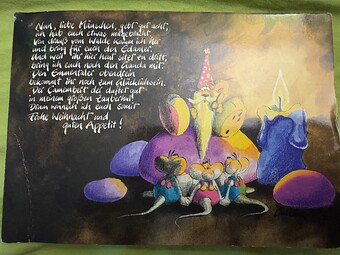 Nun, liebe Mäuschen, gebt gut acht,
ich hab euch etwas mitgebracht.
Von drauß vom Walde komm ich her
und bring für euch den Edamer.
Und weil ihr hier heut sitzt zu dritt,
bring ich euch noch den Gouda mit.
Den Emmentaler obendrein
bekommt ihr noch zum Glücklichsein.
Der Camembert der duftet gut
in meinem großen Zauberhut.
Dann wünsch ich euch somit
Frohe Weihnacht und
guten Appetit!